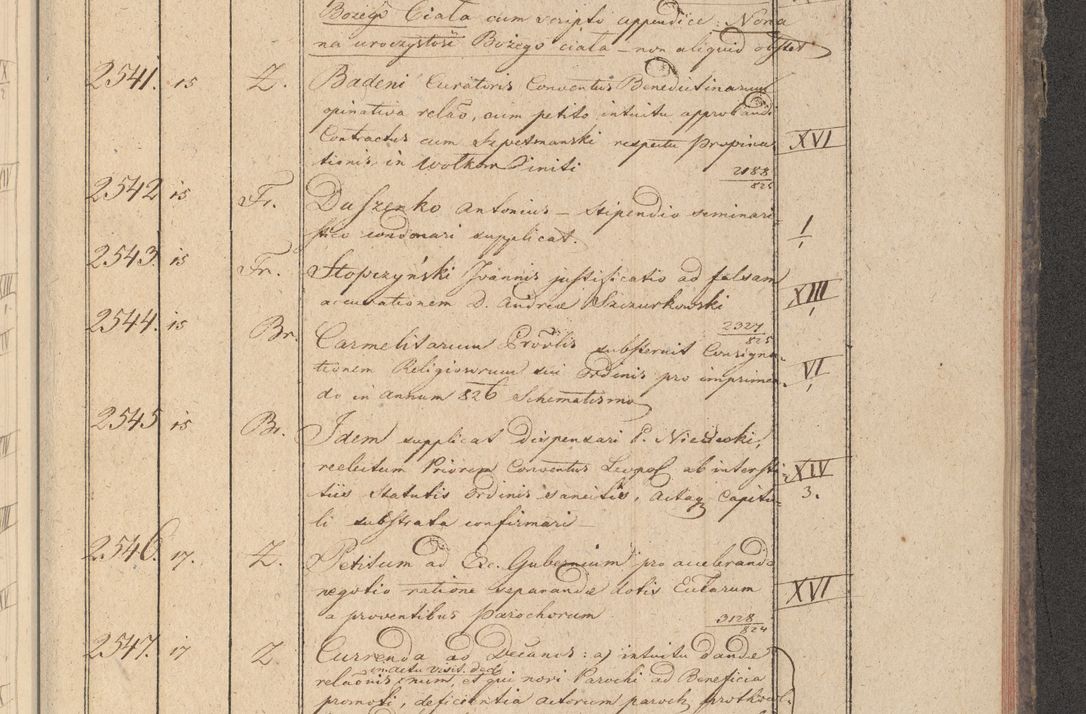 Bożego Ciała cum scripti appendice: Nona
na uroczystość Bożego ciała – non aliquid obstet
2541. 15 Z. Badeni Curatoris Conventus Benedictinarum
opinativa relāo, cum petito intuitu approbandi
Contractus cum respectu Propina- XVI
tionis in initi 2188/825
2542 15 Fr. Duszenko Antonius – Stipendio seminari-
stico condonari supplicat. 1/1
2543. 15 Fr. Słopczyński Joannis justificatio ad falsam
accusationem D. Andreæ Szczurkowski XIII/1
2544. 15 Br. Carmelitarum substernit Consigna- 2327/825
tionem Religiosorum sui Ordinis pro imprimen- VI/1
do in annum 826 Schematismo
2545 15 Br. Idem supplicat dispensari P.
reelectum Priorem Conventus Leopol ab intersti- XIV
tiis Statutis Ordinis sancitis, Actaq Capitu- 3.
li substrata confirmari –
2546. 17. Z. Petitum ad Exc. Gubernium pro accelerando
negotio ratione separandæ dotis XVI
a proventibus parochorum 3128/824
2547. 17 Z. Currenda ad Decanos: a) intuitu dandæ
in actu visit. dec
num, et qui novi Parochi ad Beneficia
promoti, deficientia actorum paroch